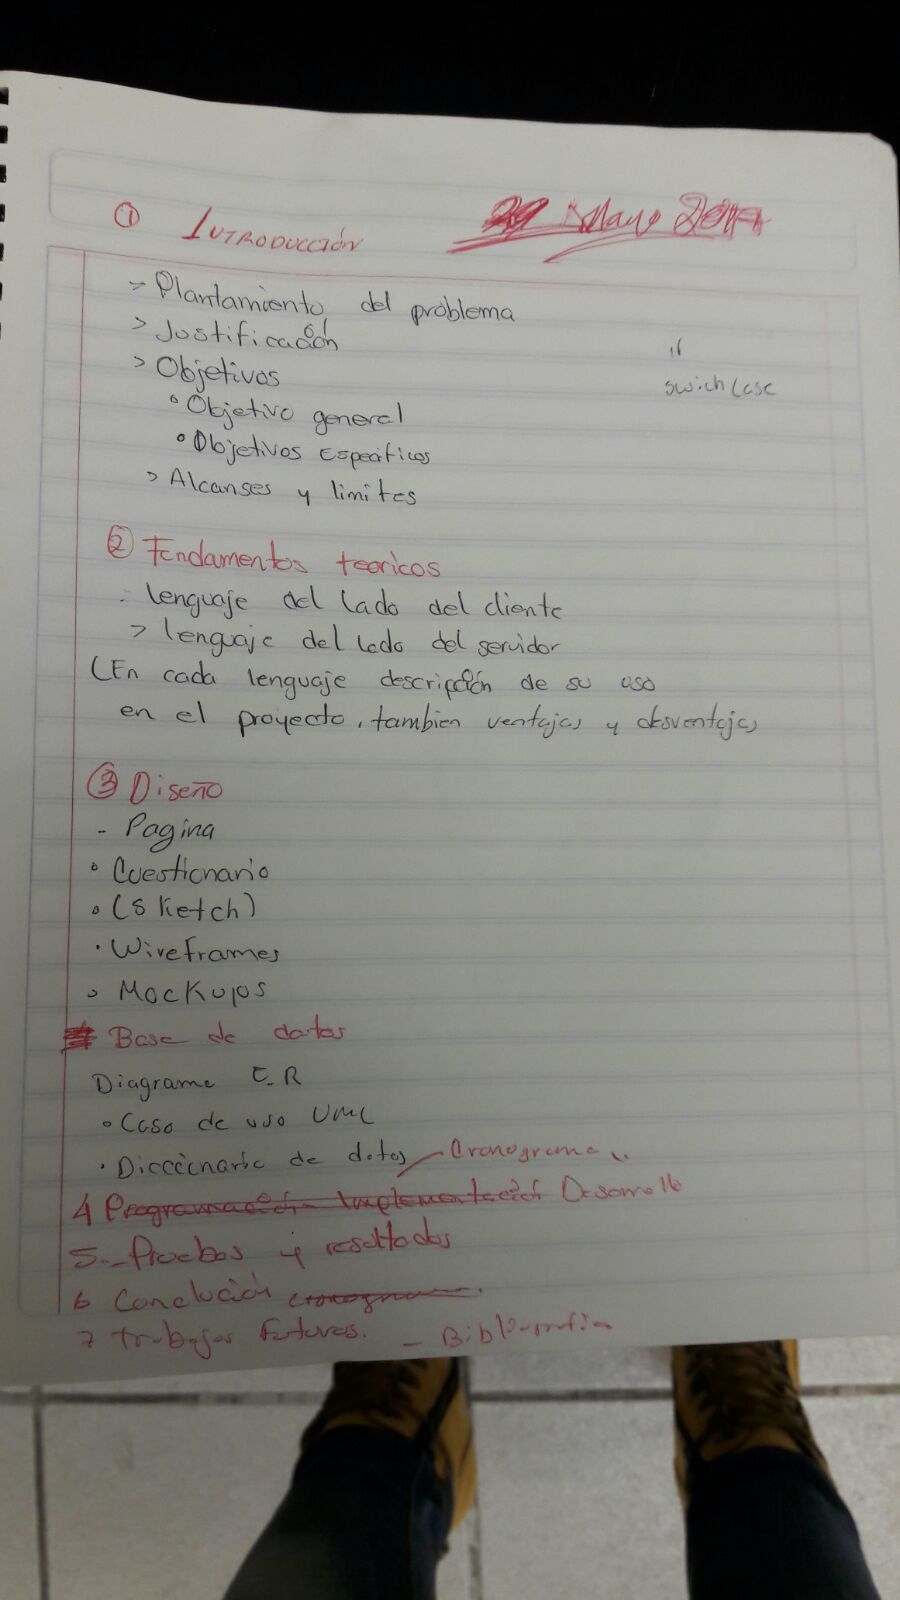 ① INTRODUCCIÓN
Mayo 2017
> Plantamiento del problema
> Justificación
> Objetivos
° Objetivo general
° Objetivos Especificos
> Alcanses y limites
if
swich case
② Fundamentos teoricos
- lenguaje del lado del cliente
> lenguaje del lado del servidor
(En cada lenguaje descripción de su uso
en el proyecto, tambien ventajas y desventajas
③ Diseño
- Pagina
° Cuestionario
° (Sketch)
· Wireframes
> Mockups
Base de datos
Diagrama E.R
° Caso de uso UML
· Diccionario de datos - Cronograma
4 Programación Implementación Desarrollo
5.- Pruebas y resultados
6 Conclución cronograma
7 trabajos futuros. - Bibliografia